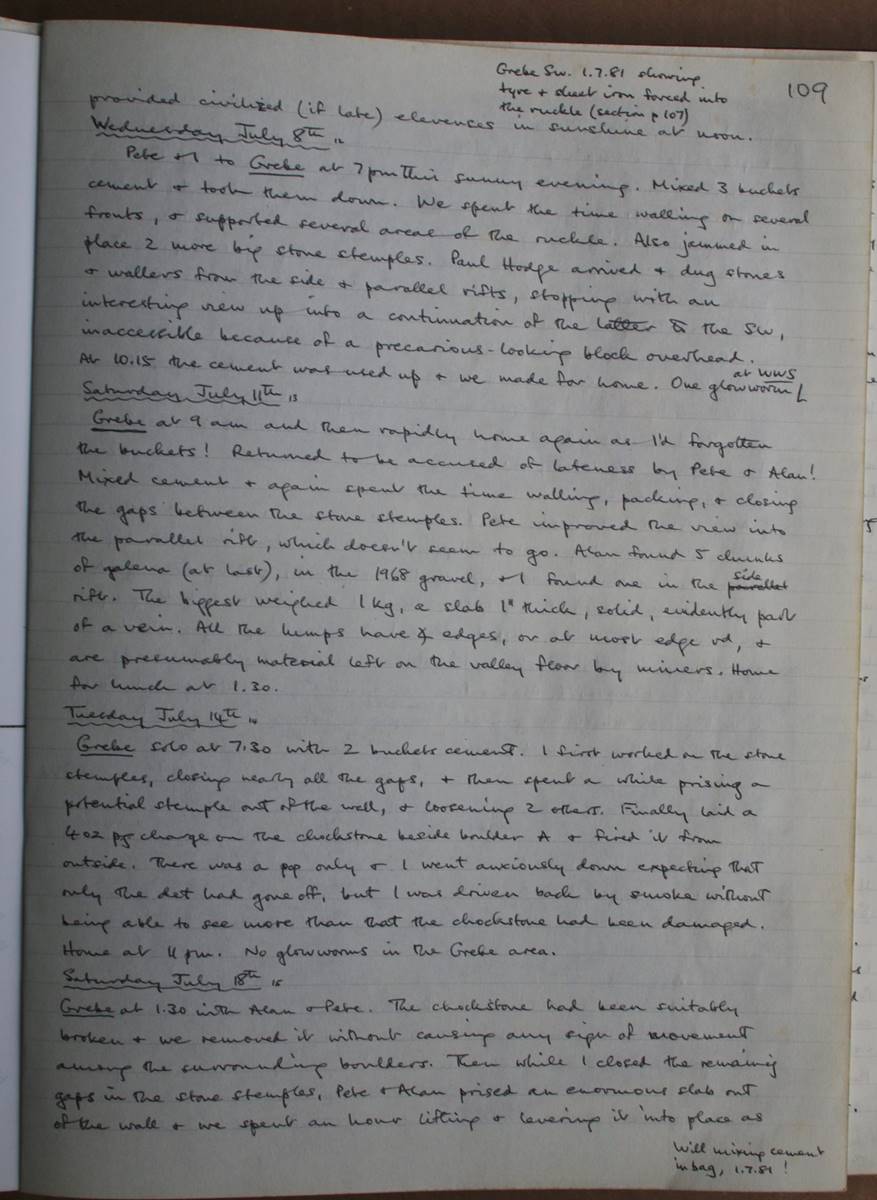 Grebe Sw. 1.7.81 showing
tyre + sheet iron forced into
the ruckle (section p 107)
109
provided civilized (if late) elevenses in sunshine at noon.
Wednesday July 8th 12
Pete + I to Grebe at 7pm this sunny evening. Mixed 3 buckets
cement + took them down. We spent the time walling on several
fronts, + supported several areas of the ruckle. Also jammed in
place 2 more big stone stemples. Paul Hodge arrived + dug stones
+ wallers from the side + parallel rifts, stopping with an
interesting view up into a continuation of the latter to the SW,
inaccessible because of a precarious-looking block overhead.
At 10.15 the cement was used up + we made for home. One glowworm at WWS
Saturday July 11th 13
Grebe at 9 am and then rapidly home again as I'd forgotten
the buckets! Returned to be accused of lateness by Pete + Alan!
Mixed cement + again spent the time walling, packing, + closing
the gaps between the stone stemples. Pete improved the view into
the parallel rift, which doesn't seem to go. Alan found 5 chunks
of galena (at last), in the 1968 gravel, + I found one in the parallel side
rift. The biggest weighed 1 kg, a slab 1" thick, solid, evidently part
of a vein. All the lumps have edges, or at most edge rd, +
are presumably material left on the valley floor by miners. Home
for lunch at 1.30.
Tuesday July 14th 14
Grebe solo at 7.30 with 2 buckets cement. I first worked on the stone
stemples, closing nearly all the gaps, + then spent a while prising a
potential stemple out of the wall, + loosening 2 others. Finally laid a
4 oz pg charge on the chockstone beside boulder A + fired it from
outside. There was a pop only + I went anxiously down expecting that
only the det had gone off, but I was driven back by smoke without
being able to see more than that the chockstone had been damaged.
Home at 11 pm. No glowworms in the Grebe area.
Saturday July 18th 15
Grebe at 1.30 with Alan + Pete. The chockstone had been suitably
broken + we removed it without causing any sign of movement
among the surrounding boulders. Then while I closed the remaining
gaps in the stone stemples, Pete + Alan prised an enormous slab out
of the wall + we spent an hour lifting + levering it into place as
Will mixing cement
in bag, 1.7.81 !